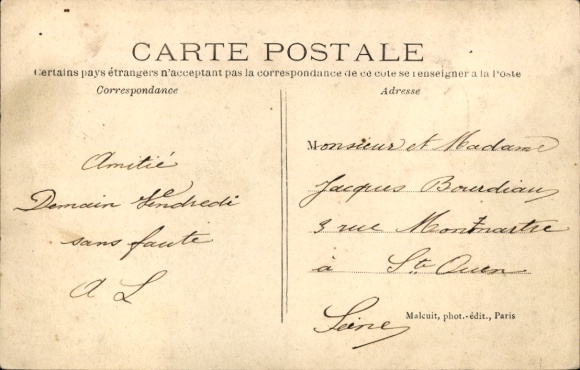 CARTE POSTALE
Certains pays étrangers n'acceptant pas la correspondance de ce coté se renseigner à la Poste
Correspondance
Adresse
Amitié
Demain Vendredi
sans faute
A L
Monsieur et Madame
Jacques Bourdiau
3 rue Montmartre
à St. Ouen
Seine
Malcuit, phot.-édit., Paris